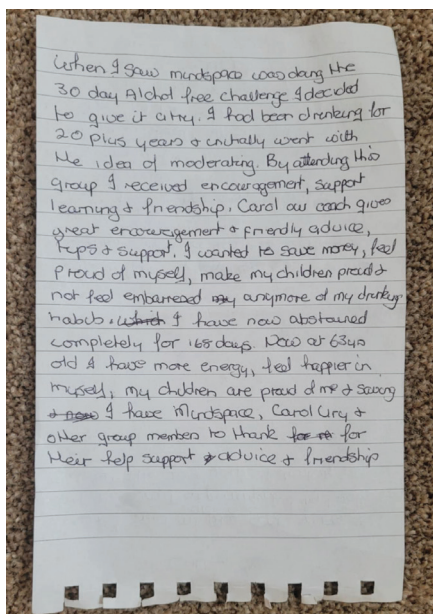 When I saw mindspace was doing the
30 day Alchol free challenge I decided
to give it a try. I had been drinking for
20 plus years & initially went with
the idea of moderating. By attending this
group I received encouragement, support
learning & friendship. Carol our coach gives
great encouragement & friendly advice,
tips & support. I wanted to save money, feel
proud of myself, make my children proud &
not feel embarresed anymore of my drinking
habib. I have now abstained
completely for 168 days. Now at 63yo
old I have more energy, feel happier in
myself, my children are proud of me & saving
I have Mindspace, Carol &
other group members to thank for
their help support & advice & friendship